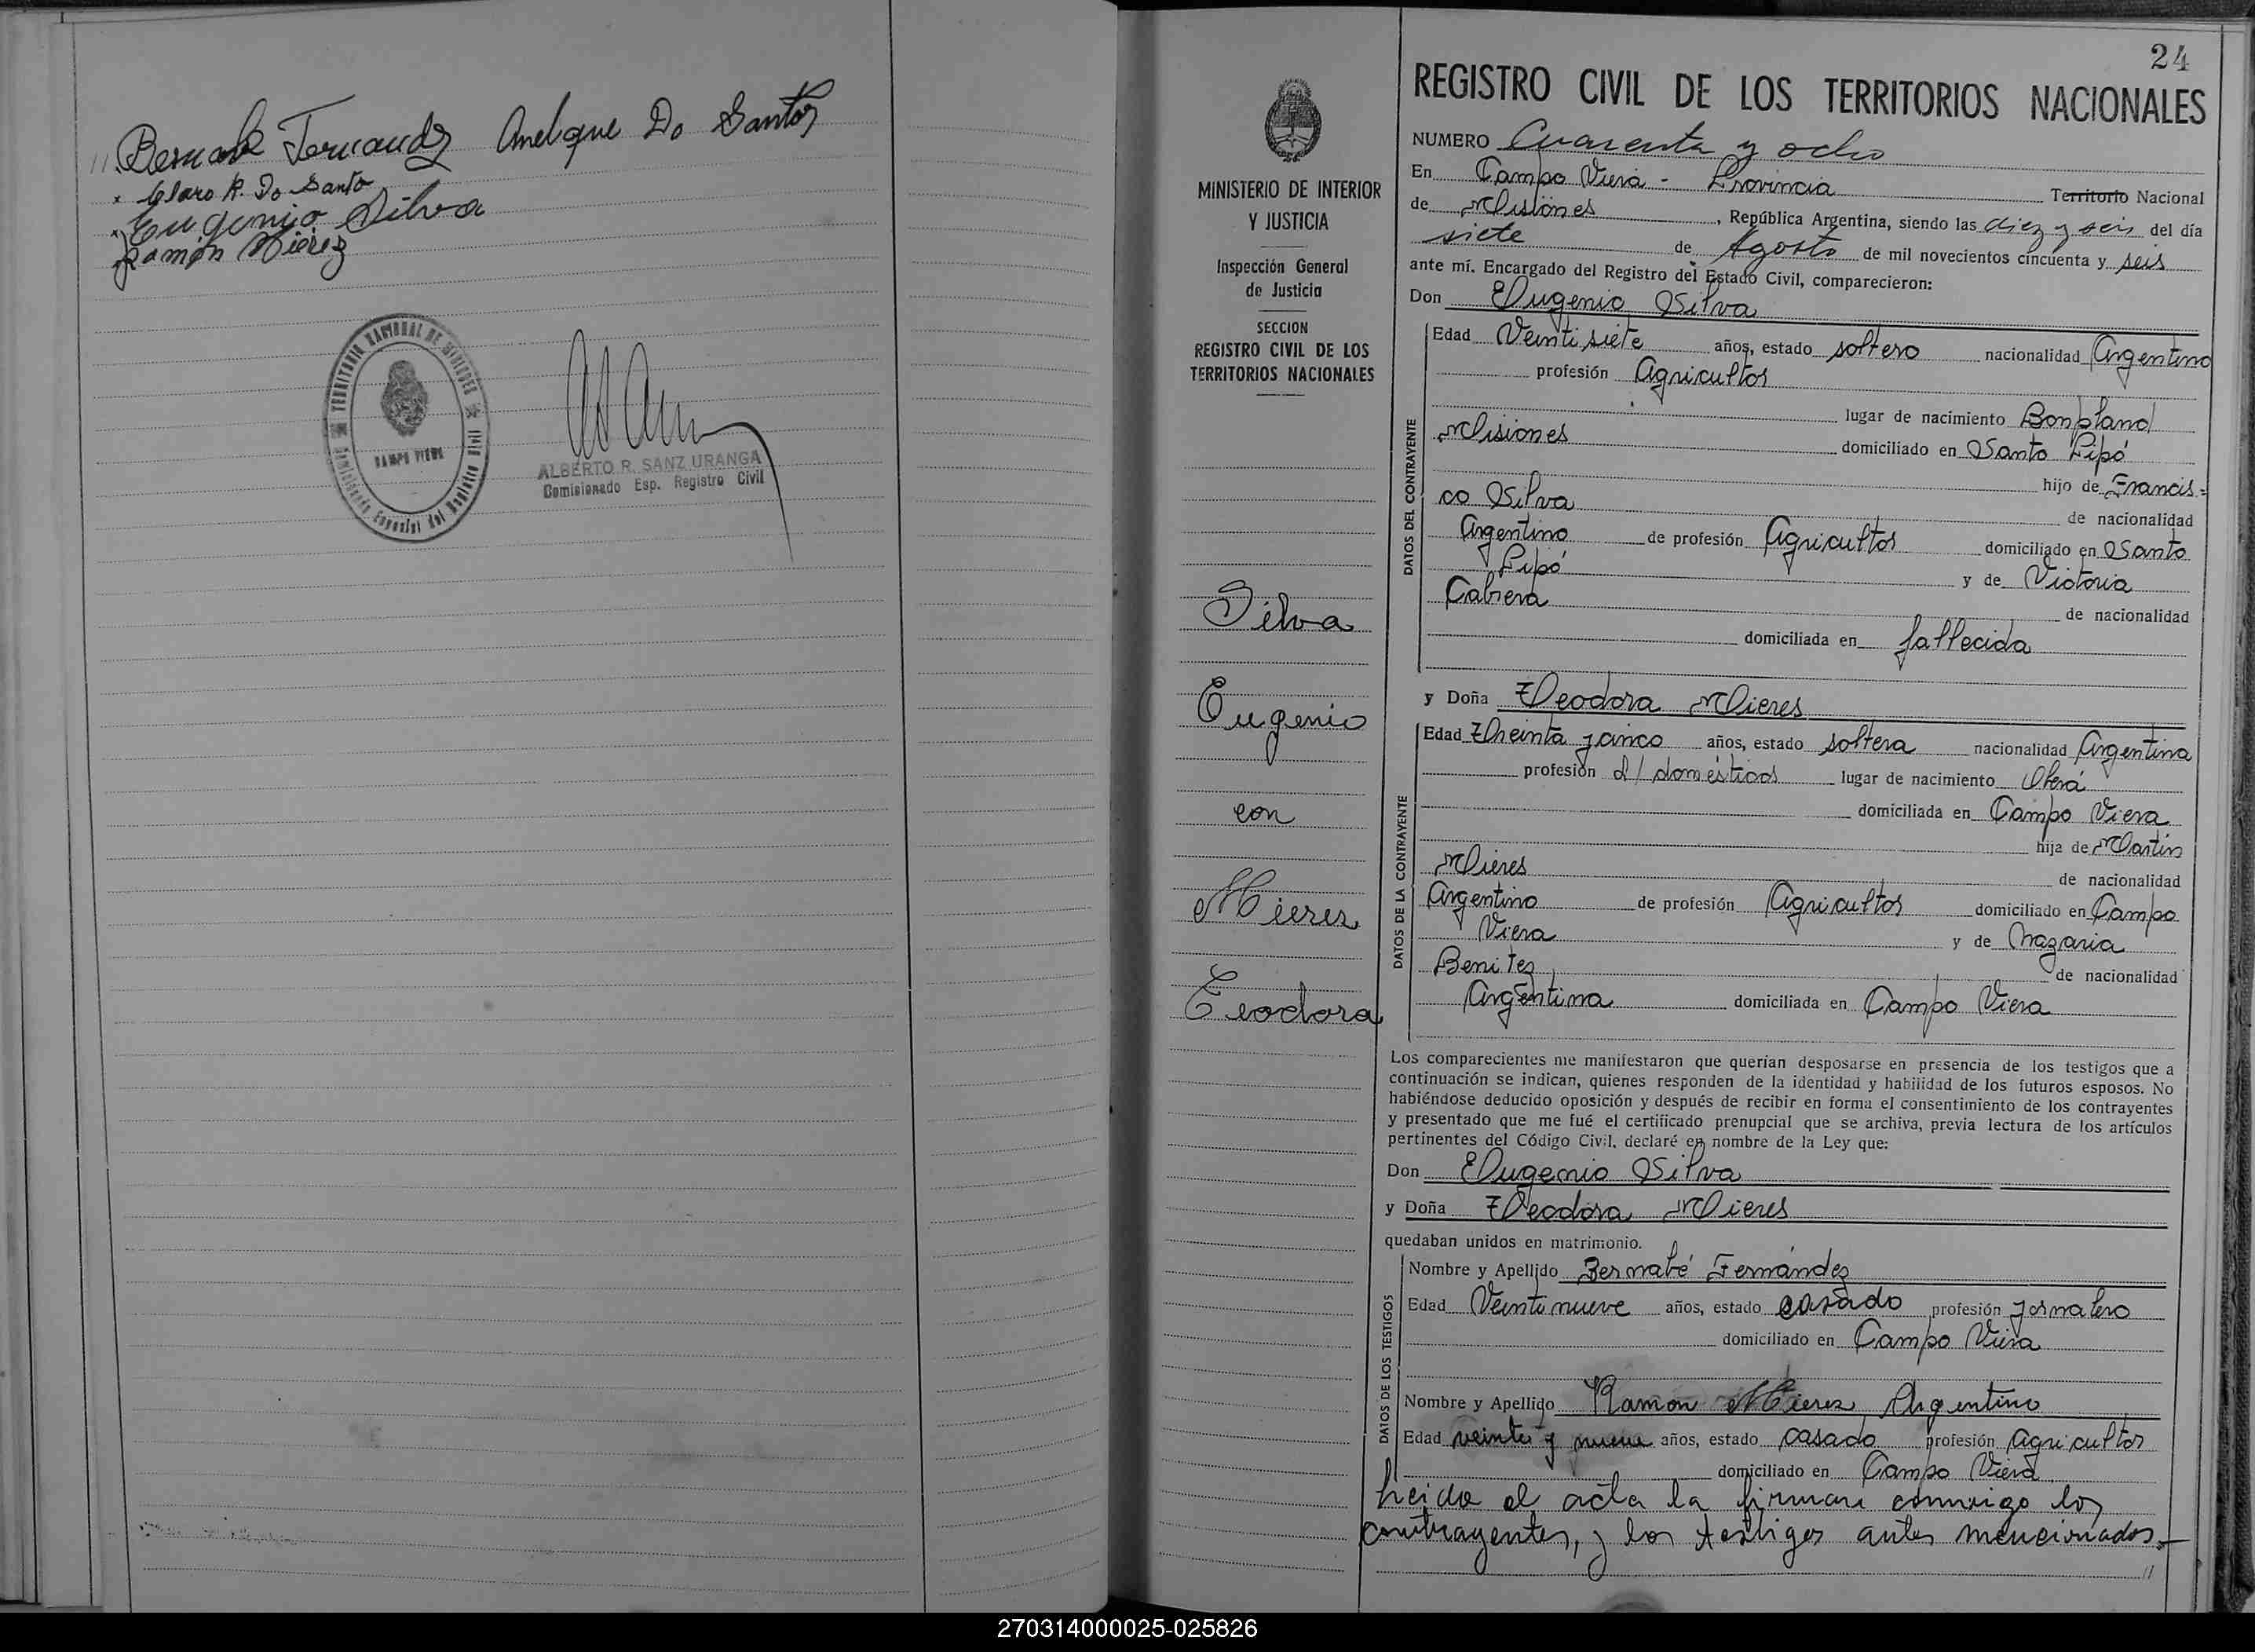 // Bernabe Fernandz Anelque Do Santos
x Claro R. Do Santo
x Eugenio Silva
x Ramón Mierez
TERRITORIO NACIONAL DE MISIONES
CAMPO VIERA
Comisionado Especial del Registro Civil
ALBERTO R. SANZ URANGA
Comisionado Esp. Registro Civil
24
MINISTERIO DE INTERIOR
Y JUSTICIA
Inspección General
de Justicia
SECCION
REGISTRO CIVIL DE LOS
TERRITORIOS NACIONALES
Silva
Eugenio
con
Mierez
Teodora
REGISTRO CIVIL DE LOS TERRITORIOS NACIONALES
NUMERO Cuarenta y ocho
En Campo Viera - Provincia Territorio Nacional
de Misiones, República Argentina, siendo las diez y seis del día
siete de Agosto de mil novecientos cincuenta y seis
ante mí. Encargado del Registro del Estado Civil, comparecieron:
Don Eugenio Silva
DATOS DEL CONTRAYENTE
Edad Veintisiete años, estado soltero nacionalidad Argentino
profesión Agricultor
lugar de nacimiento Bonpland
Misiones domiciliado en Santo Pipó
hijo de Francis=
co Silva de nacionalidad
Argentino de profesión Agricultor domiciliado en Santo
Pipó y de Victoria
Cabrera de nacionalidad
domiciliada en fallecida
y Doña Teodora Mieres
DATOS DE LA CONTRAYENTE
Edad Treinta y cinco años, estado soltera nacionalidad Argentina
profesión d/ domésticos lugar de nacimiento Oberá
domiciliada en Campo Viera
hija de Martin
Mieres de nacionalidad
Argentino de profesión Agricultor domiciliado en Campo
Viera y de Nazaria
Benitez de nacionalidad
Argentina domiciliada en Campo Viera
Los comparecientes me manifestaron que querían desposarse en presencia de los testigos que a
continuación se indican, quienes responden de la identidad y habilidad de los futuros esposos. No
habiéndose deducido oposición y después de recibir en forma el consentimiento de los contrayentes
y presentado que me fué el certificado prenupcial que se archiva, previa lectura de los artículos
pertinentes del Código Civil, declaré en nombre de la Ley que:
Don Eugenio Silva
y Doña Teodora Mieres
quedaban unidos en matrimonio.
DATOS DE LOS TESTIGOS
Nombre y Apellido Bernabé Fernández
Edad Veintinueve años, estado casado profesión jornalero
domiciliado en Campo Viera
Nombre y Apellido Ramon Mierez Argentino
Edad veinte y nueve años, estado casado profesión Agricultor
domiciliado en Campo Viera
Leida el acta la firman conmigo los
contrayentes, y los testigos antes mencionados.-
//
270314000025-025826